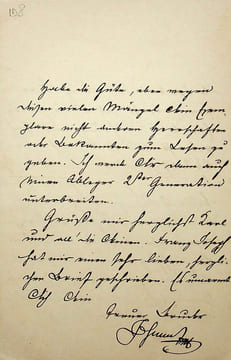 108
Habe die Güte, eben wegen
dieser vielen Mängel kein Exem-
plare nicht andern Herrschaften
oder Bekannten zum Lesen zu
geben. Ich werd Dir dann auch
einen Ableger 2ter Generation
unterbreiten.
Grüße mir herzlichst Karl
und all die Deinen. Franz Joseph
hat mir einen sehr lieben, herzli-
chen Brief geschrieben. Es umarmt
Dich Dein
treuer Bruder